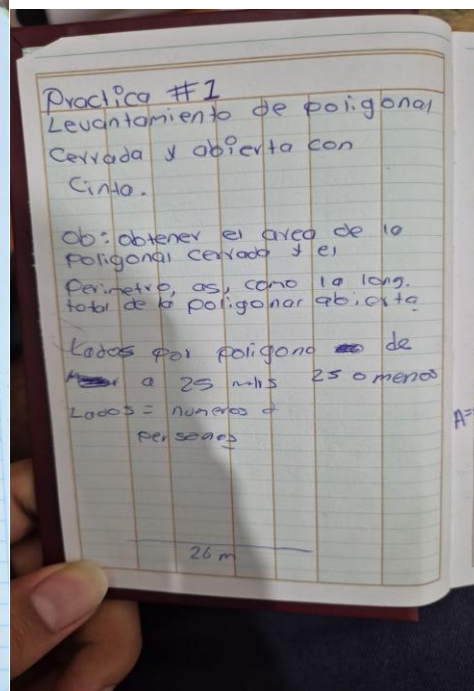 Practica #1
Levantamiento de poligonal
Cerrada y abierta con
Cinta.
ob: obtener el area de la
poligonal cerrada y el
Perimetro, asi, como la long.
total de la poligonar abierta
Lados por poligono de
a 25 mts 25 o menos
Lados = numeros d
personas
26 m
A=